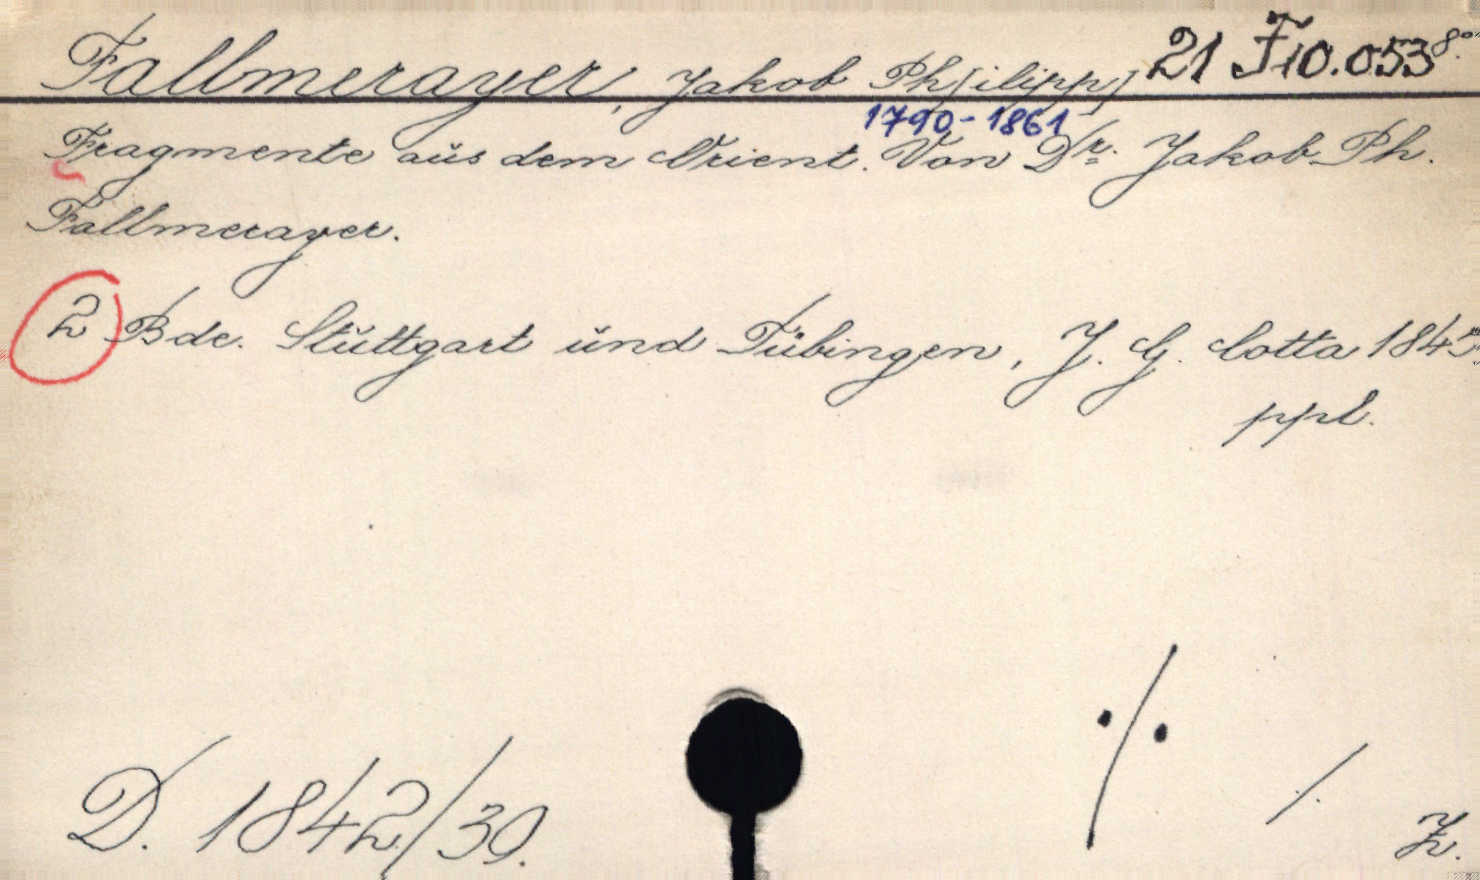 Fallmerayer, Jakob Ph[ilipp] 21 F10.053 8°
1790-1861
Fragmente aus dem Orient. Von Dr. Jakob Ph.
Fallmerayer.
2 Bde. Stuttgart und Tübingen, J. G. Cotta 1845
ppl.
D. 1842/30.